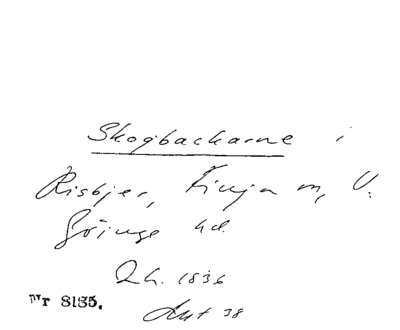 Skogbackarne i
Risbjer, Finja sn, V.
Göinge hd.
Lh. 1836
nr 8135.
Avt 38